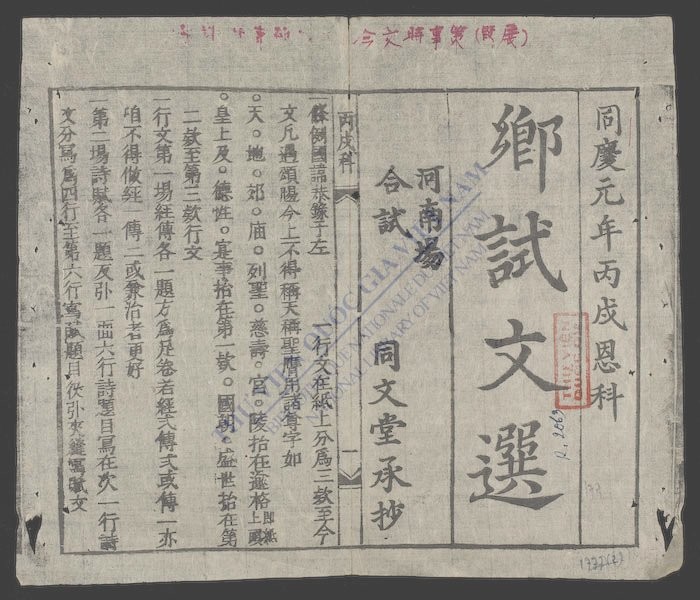 今文時事策
同慶元年丙戌恩科
鄉試文選
河南場
合試
同文堂承抄
丙戌科
一條例國諱恭錄于左
行文在紙上分爲三款至今
文凡遇頌陽今上不得稱天稱聖應用諸尊字如
天。地。郊。庙。列聖。慈壽。宮。陵抬在
皇上及。德性。寔事抬在第一款。國朝。盛世抬在第
二款至第三款行文
一行文第一場經傳各一題方爲足卷若經弍傳弍或傳一亦
咱不得做經一傳二或兼治者更好
一第二場詩賦各一題及引一面六行詩題目寫在次一行詩
文分寫爲四行至第六行寫賦題目
THƯ VIỆN QUỐC GIA VIỆT NAM
BIBLIOTHÈQUE NATIONALE DU VIETNAM
NATIONAL LIBRARY OF VIETNAM
THƯ VIỆN
R.2063
1722(2)